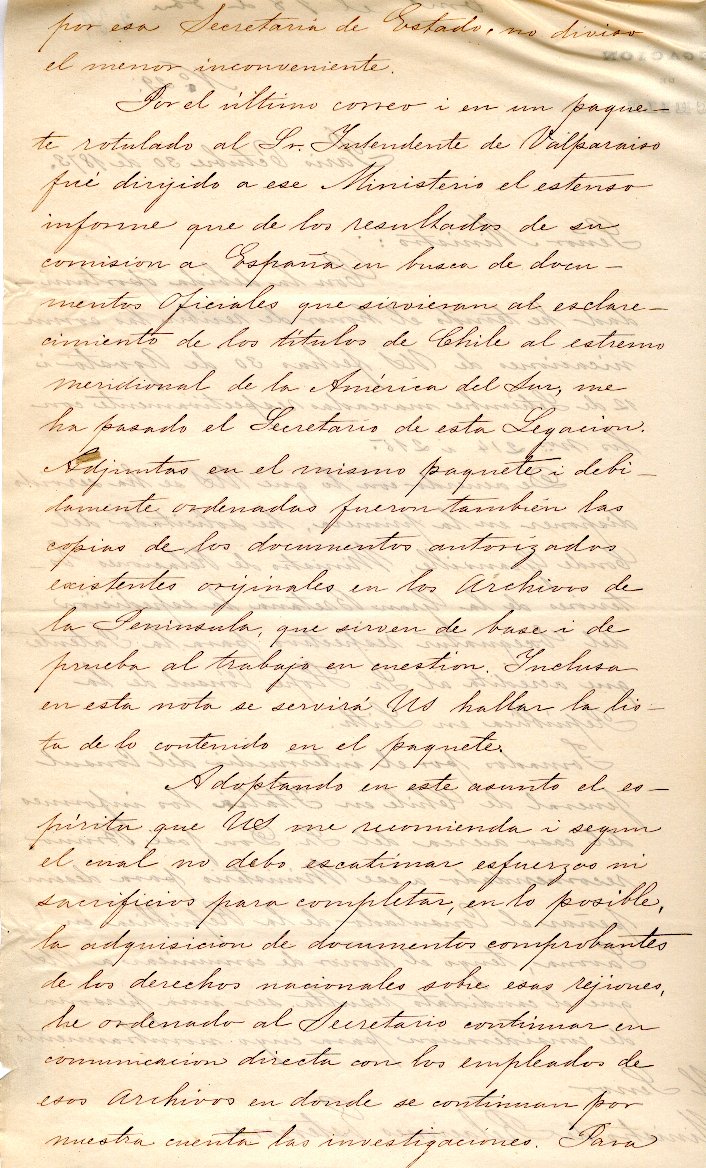 por esa Secretaría de Estado, no diviso
el menor inconveniente.
Por el último correo i en un paque-
te rotulado al Sr. Intendente de Valparaiso
fué dirijido a ese Ministerio el estenso
informe que de los resultados de su
comision a España en busca de docu-
mentos Oficiales que sirvieran al esclare-
cimiento de los títulos de Chile al estremo
meridional de la América del Sur, me
ha pasado el Secretario de esta Legacion.
Adjuntas en el mismo paquete i debi-
damente ordenadas fueron también las
copias de los documentos autorizados
existentes orijinales en los Archivos de
la Peninsula, que sirven de base i de
prueba al trabajo en cuestion. Inclusa
en esta nota se servirá US hallar la lis-
ta de lo contenido en el paquete.
Adoptando en este asunto el es-
píritu que US me recomienda i segun
el cual no debo escatimar esfuerzos ni
sacrificios para completar, en lo posible,
la adquisicion de documentos comprobantes
de los derechos nacionales sobre esas rejiones,
he ordenado al Secretario continuar en
comunicacion directa con los empleados de
esos Archivos en donde se continuan por
nuestra cuenta las investigaciones. Para